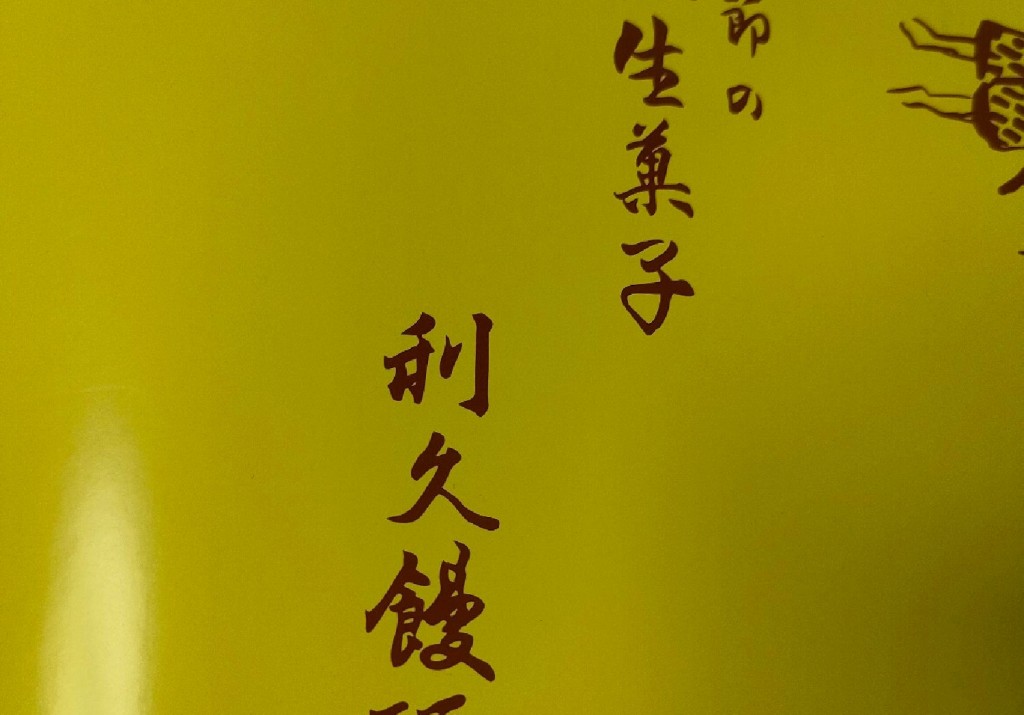 節の
生菓子
利久饅